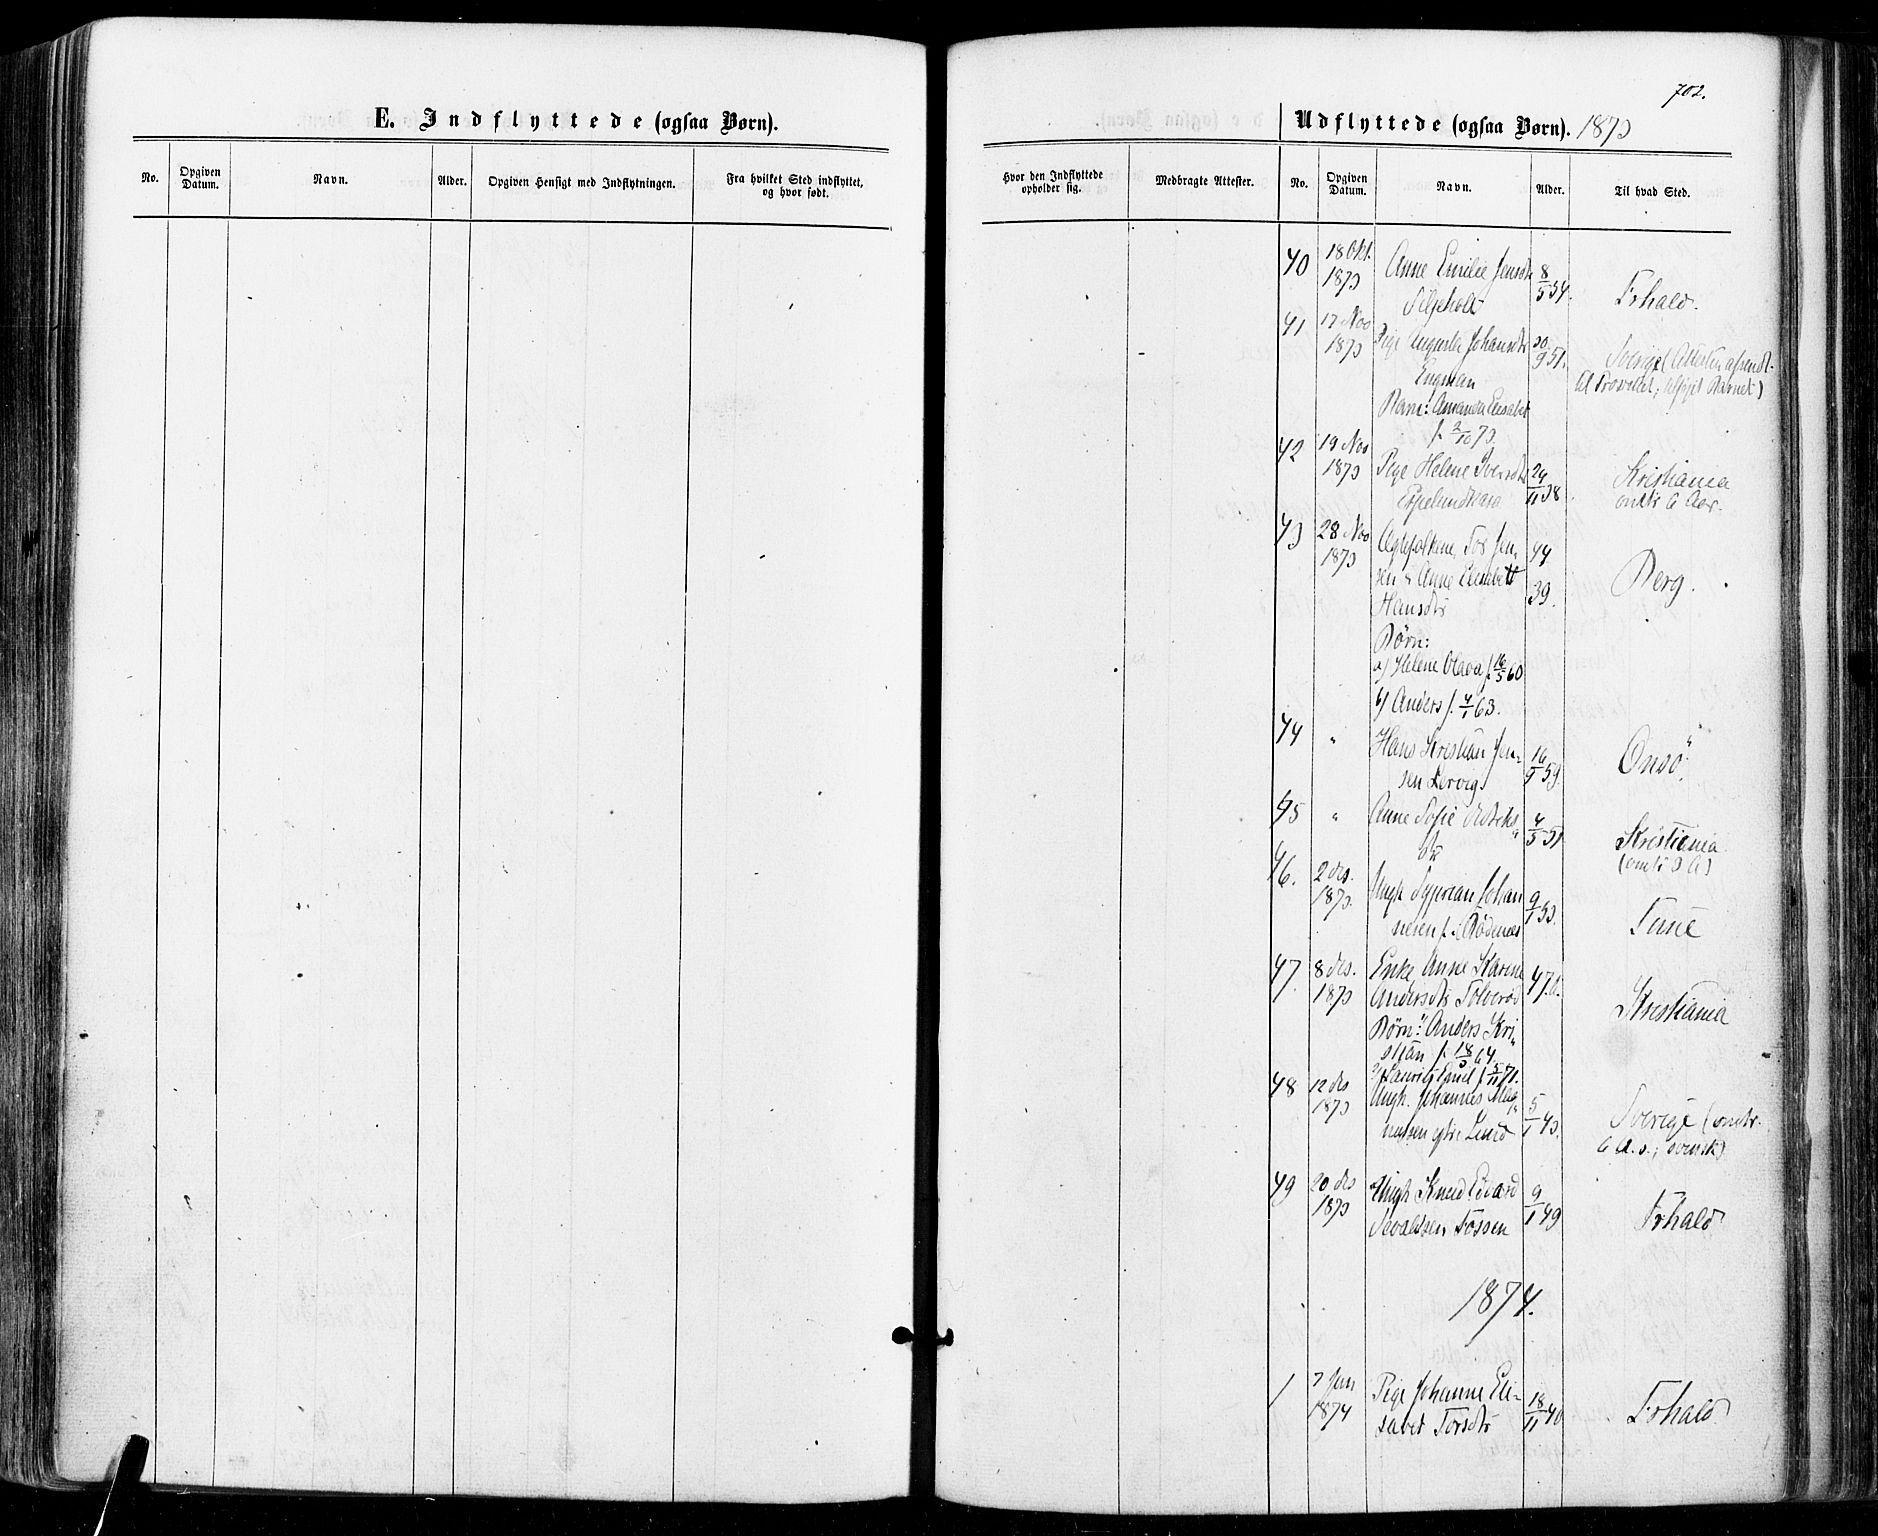 702.
E. Indflyttede (ogsaa Børn).
No.
Opgiven Datum.
Navn.
Alder.
Opgiven Hensigt med Indflytningen.
Fra hvilket Sted indflyttet, og hvor født.
Udflyttede (ogsaa Børn). 1873
Hvor den Indflyttede opholder sig.
Medbragte Attester.
No.
Opgiven Datum.
Navn.
Alder.
Til hvad Sted.
40 18 Okt. 1873 Anne Emilie Jensdtr 8/5 54. Frhald.
41 17 Nov 1873 Pige Augusta Johansdtr 30/9 51. Sverige (Attesten afsendt
Engman
Barn: Amanda Elisabet
f. 2/10 73.
42 19 Nov 1873 Pige Helene Iversdtr 24/11 38. Kristiania
omtr 6 Aar.
43 28 Nov 1873 Ægtefolkene Tor Jen- 44 Berg.
sen & Anne Elisabett 39.
Hansdtr
Børn:
a) Helene Olava f. 16/5 60
b) Anders f. 4/1 63.
44 " Hans Kristian Jen- 16/9 59. Onsö.
sen Lervig
45 " Anne Sofie 4/5 51 Kristiania
(omtr 3 A)
46. 2 des. 1873. Ungk Johan 9/1 53. Tune
nesen f. i Rödenæs
47. 8 des. 1873 Enke Anne Karine 47 Kristiania
Andersdtr
Børn: Anders Kri-
stian f. 18/3 64
2) Laurits Emil f. 5/11 71.
48 12 des 1873 Ungk. Johannes Mag- 5/1 43. Sverige (omtr.
nussen Lund 6 A. s.; svensk)
49 20 des 1873 Ungk Knud Edvard 9/1 49 Frhald
Sevaldsen Fossen
1874.
1 7 Jan 1874 Pige Johanne Eli- 18/11 40 Frhald
sabet Torsdtr